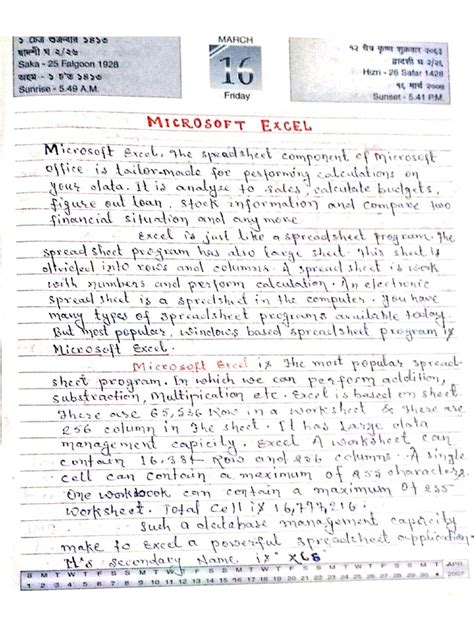 ১ চৈত্র শুক্রবার ১৪১৩
দ্বাদশী ঘ ২/২৬
Saka - 25 Falgoon 1928
Sunrise - 5.49 A.M.
MARCH
16
Friday
१२ चैत्र कृष्ण शुक्रवार २०६३
द्वादशी घ २/२६
Hizri - 26 Safar 1428
१६ मार्च २००७
Sunset - 5.41 P.M.
MICROSOFT EXCEL
Microsoft Excel, The speadsheet component of Microsoft
office is tailor-made for performing calculations on
your data. It is analyze to sales, calculate budgets,
figure out loan, stock information and compare two
financial situation and any more.
Excel is just like a spreadsheet program. The
spread sheet program has also large sheet. This sheet is
divided into rows and columns. A spread sheet is work
with numbers and perform calculation. An electronic
spread sheet is a spredsheet in the computer. You have
many types of spreadsheet programs available today.
But most popular, windows based spreadsheet program is
Microsoft Excel.
Microsoft Excel is The most popular spread-
sheet program. In which we can perform addition,
substraction, Multipication etc. Excel is based on sheet.
There are 65,536 Row in a worksheet & There are
256 column in The sheet. It has large data
management capicity. Excel A worksheet can
contain 16,384 Row and 256 columns. A single
cell can contain a maximum of 255 characters.
One workbook can contain a maximum of 255
worksheet. Total Cell is 16,777,216.
Such a database management capicity
make to Excel a powerful spreadsheet application.
It's secondary Name is XLS
S M T W T F S S M T W T F S S M T W T F S S M T W T F S S M APR
1 2 3 4 5 6 7 8 9 10 11 12 13 14 15 16 17 18 19 20 21 22 23 24 25 26 27 28 29 30 2007